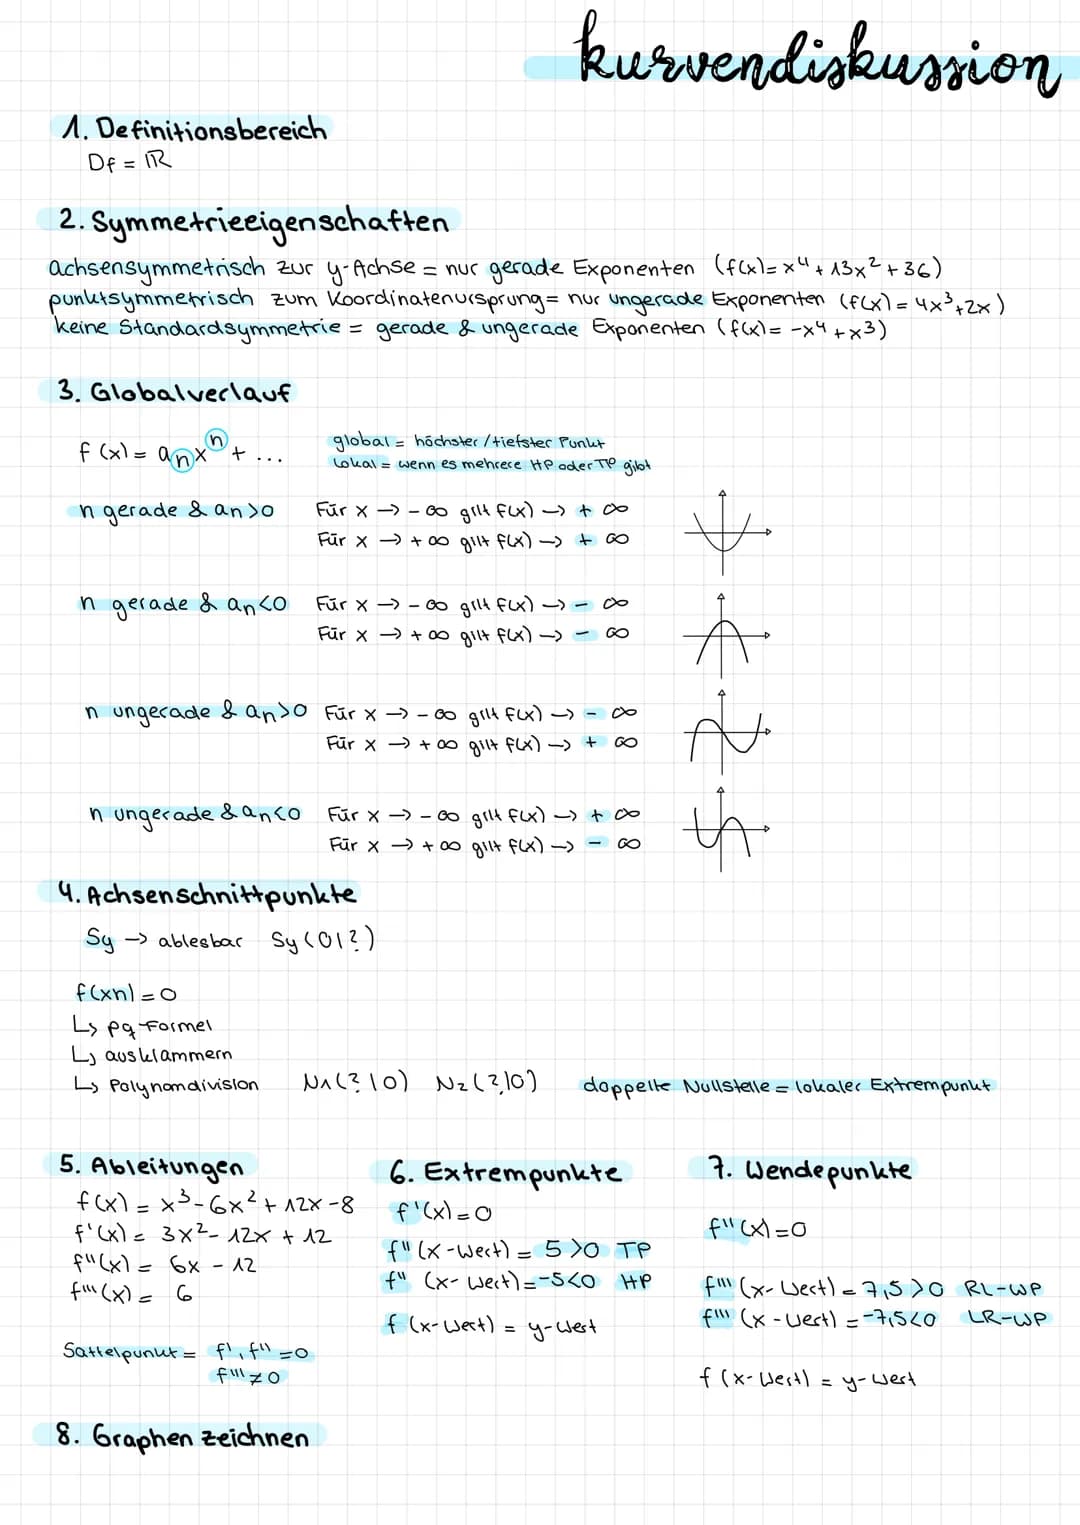 kurvendiskussion
1. Definitionsbereich
Df = ℝ
2. Symmetrieeigenschaften
achsensymmetrisch zur y-Achse = nur gerade Exponenten (f(x)= x⁴ + 13x² + 36)
punktsymmetrisch zum Koordinatenursprung = nur ungerade Exponenten (f(x) = 4x³+2x)
keine Standardsymmetrie = gerade & ungerade Exponenten (f(x)= -x⁴ + x³)
3. Globalverlauf
f(x) = aₙxⁿ + ...
global = höchster/tiefster Punkt
lokal = wenn es mehrere HP oder TP gibt
n gerade & an>0
Für x → - ∞ gilt f(x) → + ∞
Für x → + ∞ gilt f(x) → + ∞
n gerade & an<0
Für x → - ∞ gilt f(x) → - ∞
Für x → + ∞ gilt f(x) → - ∞
n ungerade & an>0
Für x → - ∞ gilt f(x) → - ∞
Für x → + ∞ gilt f(x) → + ∞
n ungerade & an<0
Für x → - ∞ gilt f(x) → + ∞
Für x → + ∞ gilt f(x) → - ∞
4. Achsenschnittpunkte
Sy → ablesbar Sy (0|?)
f(xn) = 0
↳ pq-Formel
↳ ausklammern
↳ Polynomdivision N1(?|0) N2(?|0) doppelte Nullstelle = lokaler Extrempunkt
5. Ableitungen
f(x) = x³-6x² + 12x -8
f'(x) = 3x²- 12x + 12
f''(x) = 6x - 12
f'''(x) = 6
Sattelpunkt = f', f'' = 0
f''' ≠ 0
6. Extrempunkte
f'(x) = 0
f'' (x-Wert) = 5 >0 TP
f'' (x-Wert) = -5<0 HP
f (x-Wert) = y-Wert
7. Wendepunkte
f'' (x) = 0
f''' (x-Wert) = 7,5 >0 RL-WP
f''' (x-Wert) = -7,5<0 LR-WP
f (x-Wert) = y-Wert
8. Graphen zeichnen